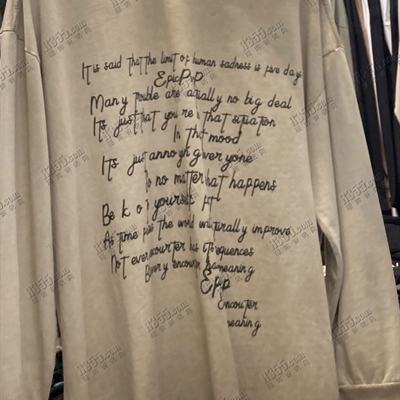 It is said that the limit of human sadness is five day
Epic
Many trouble are actually no big deal
It's just that you're that situation
In that mood
It's just annoy everyone
no matter what happens
Be to yourself
As time the world naturally improve
Not every encounter has its sequences
Every encounter has meaning
Encounter
meaning